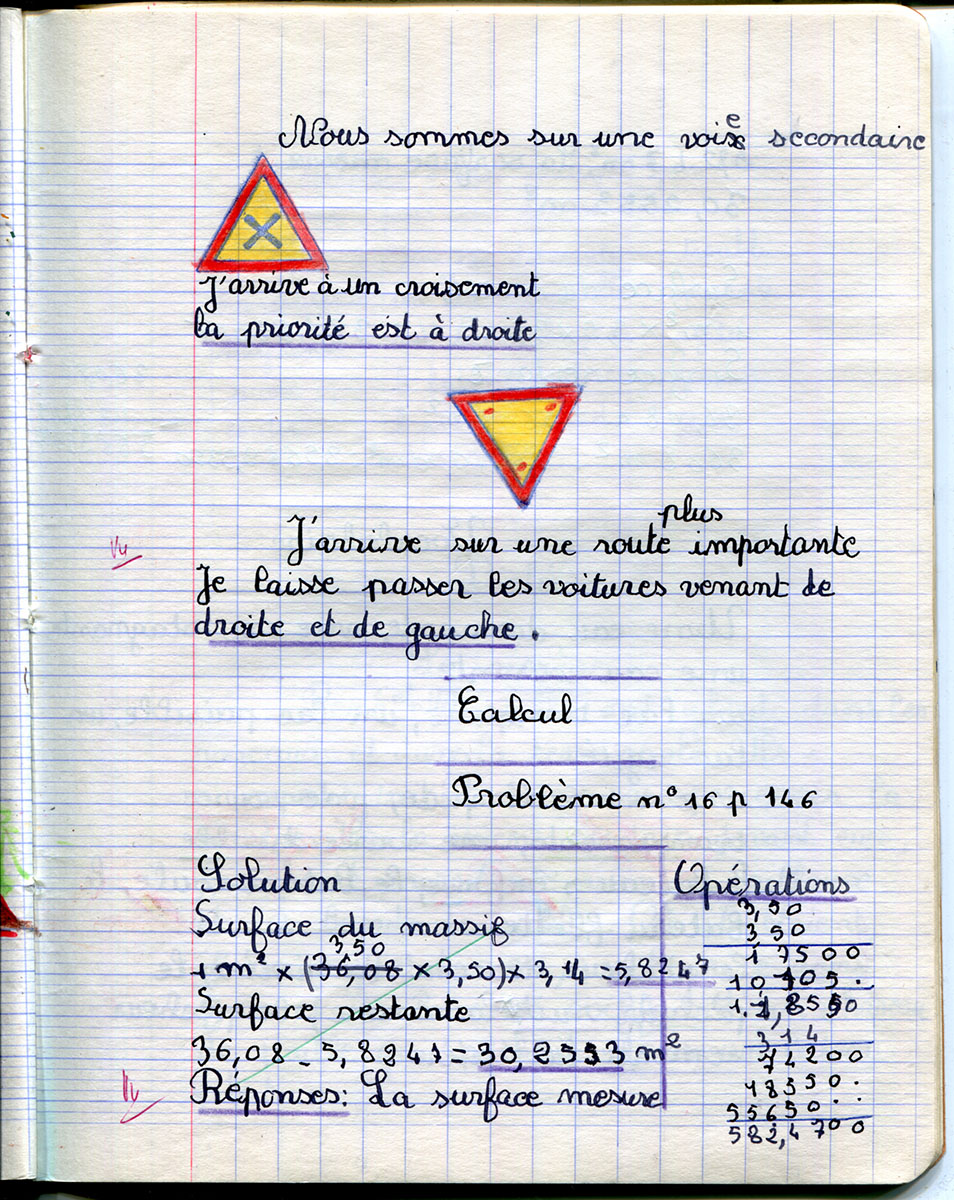 e
Nous sommes sur une voix secondaire
J'arrive à un croisement
la priorité est à droite
plus
J'arrive sur une route importante
Vu
Je laisse passer les voitures venant de
droite et de gauche.
Calcul
Problème n° 16 p 146
Solution
Surface du massif
3,50
1 m² × (36,08 × 3,50) × 3,14 = 5,8247
Surface restante
36,08 - 5,8247 = 30,2553 m²
Vu
Réponses: La surface mesure
Opérations
3,50
3 50
1 7500
10 105.
314
74200
18550.
55650..
582,4700